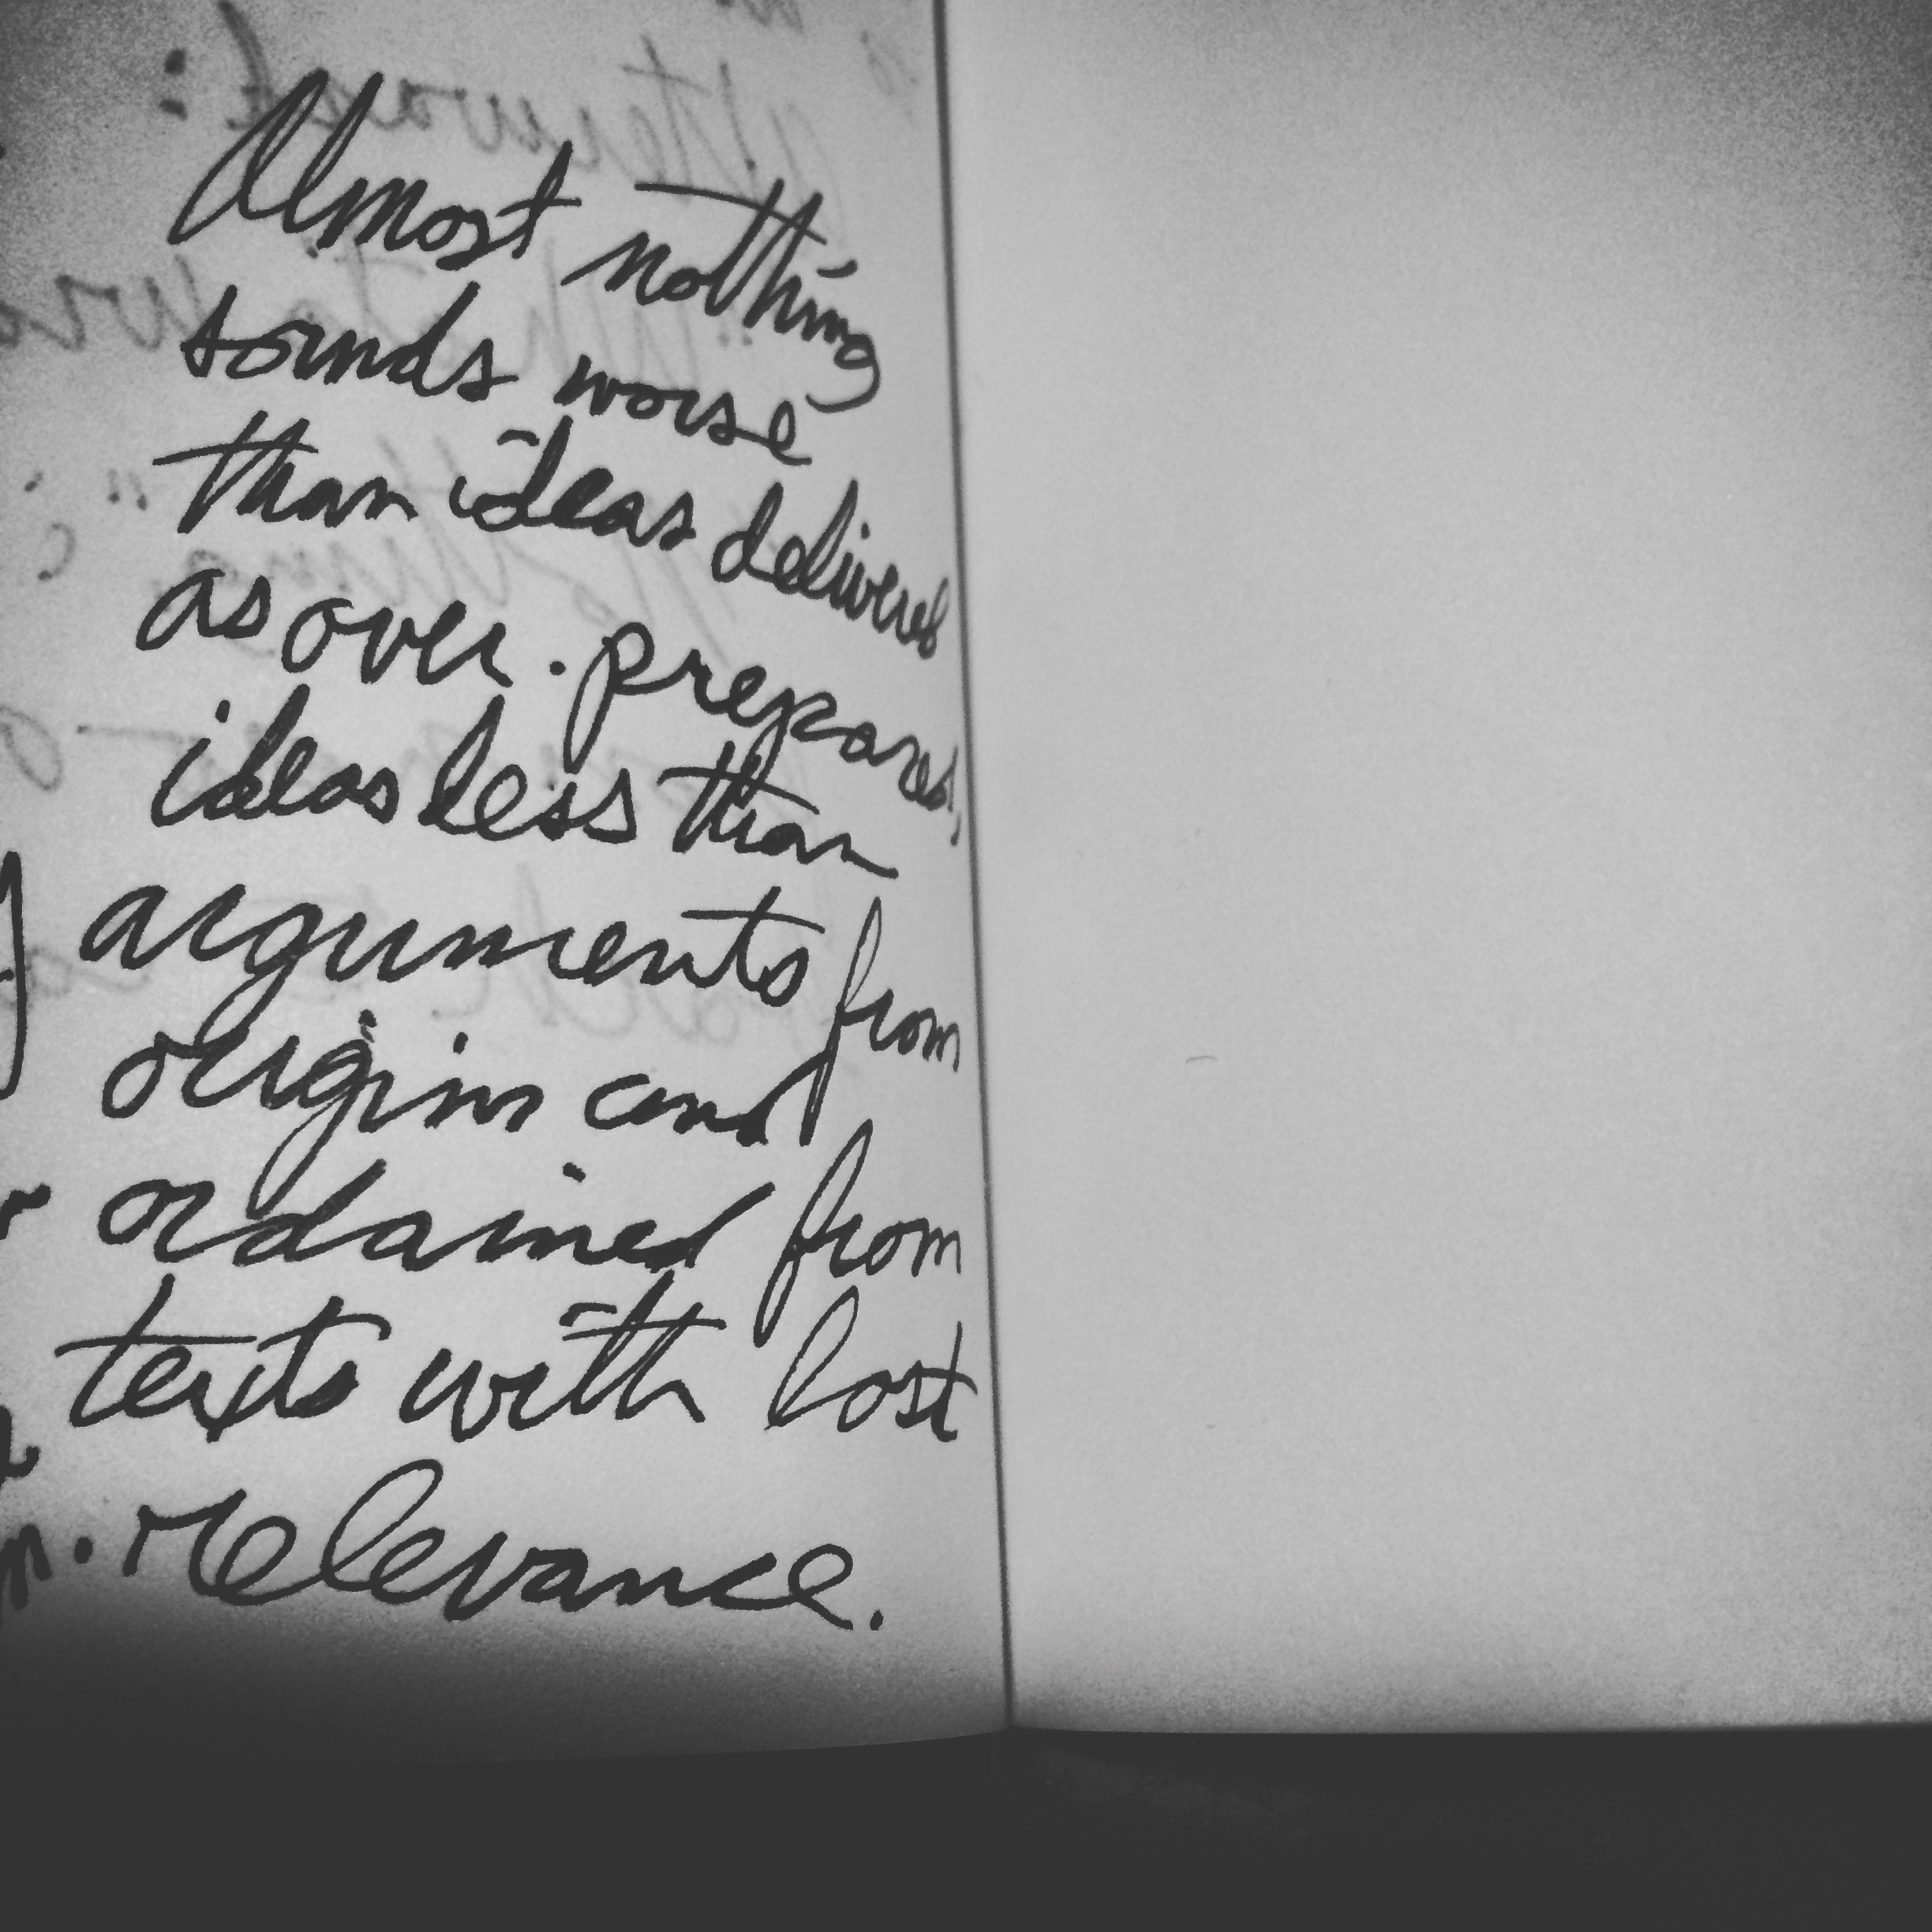 Almost nothing
sounds worse
than ideas delivered
as over-prepared,
ideas less than
arguments from
origins and
ordained from
texts with lost
relevance.